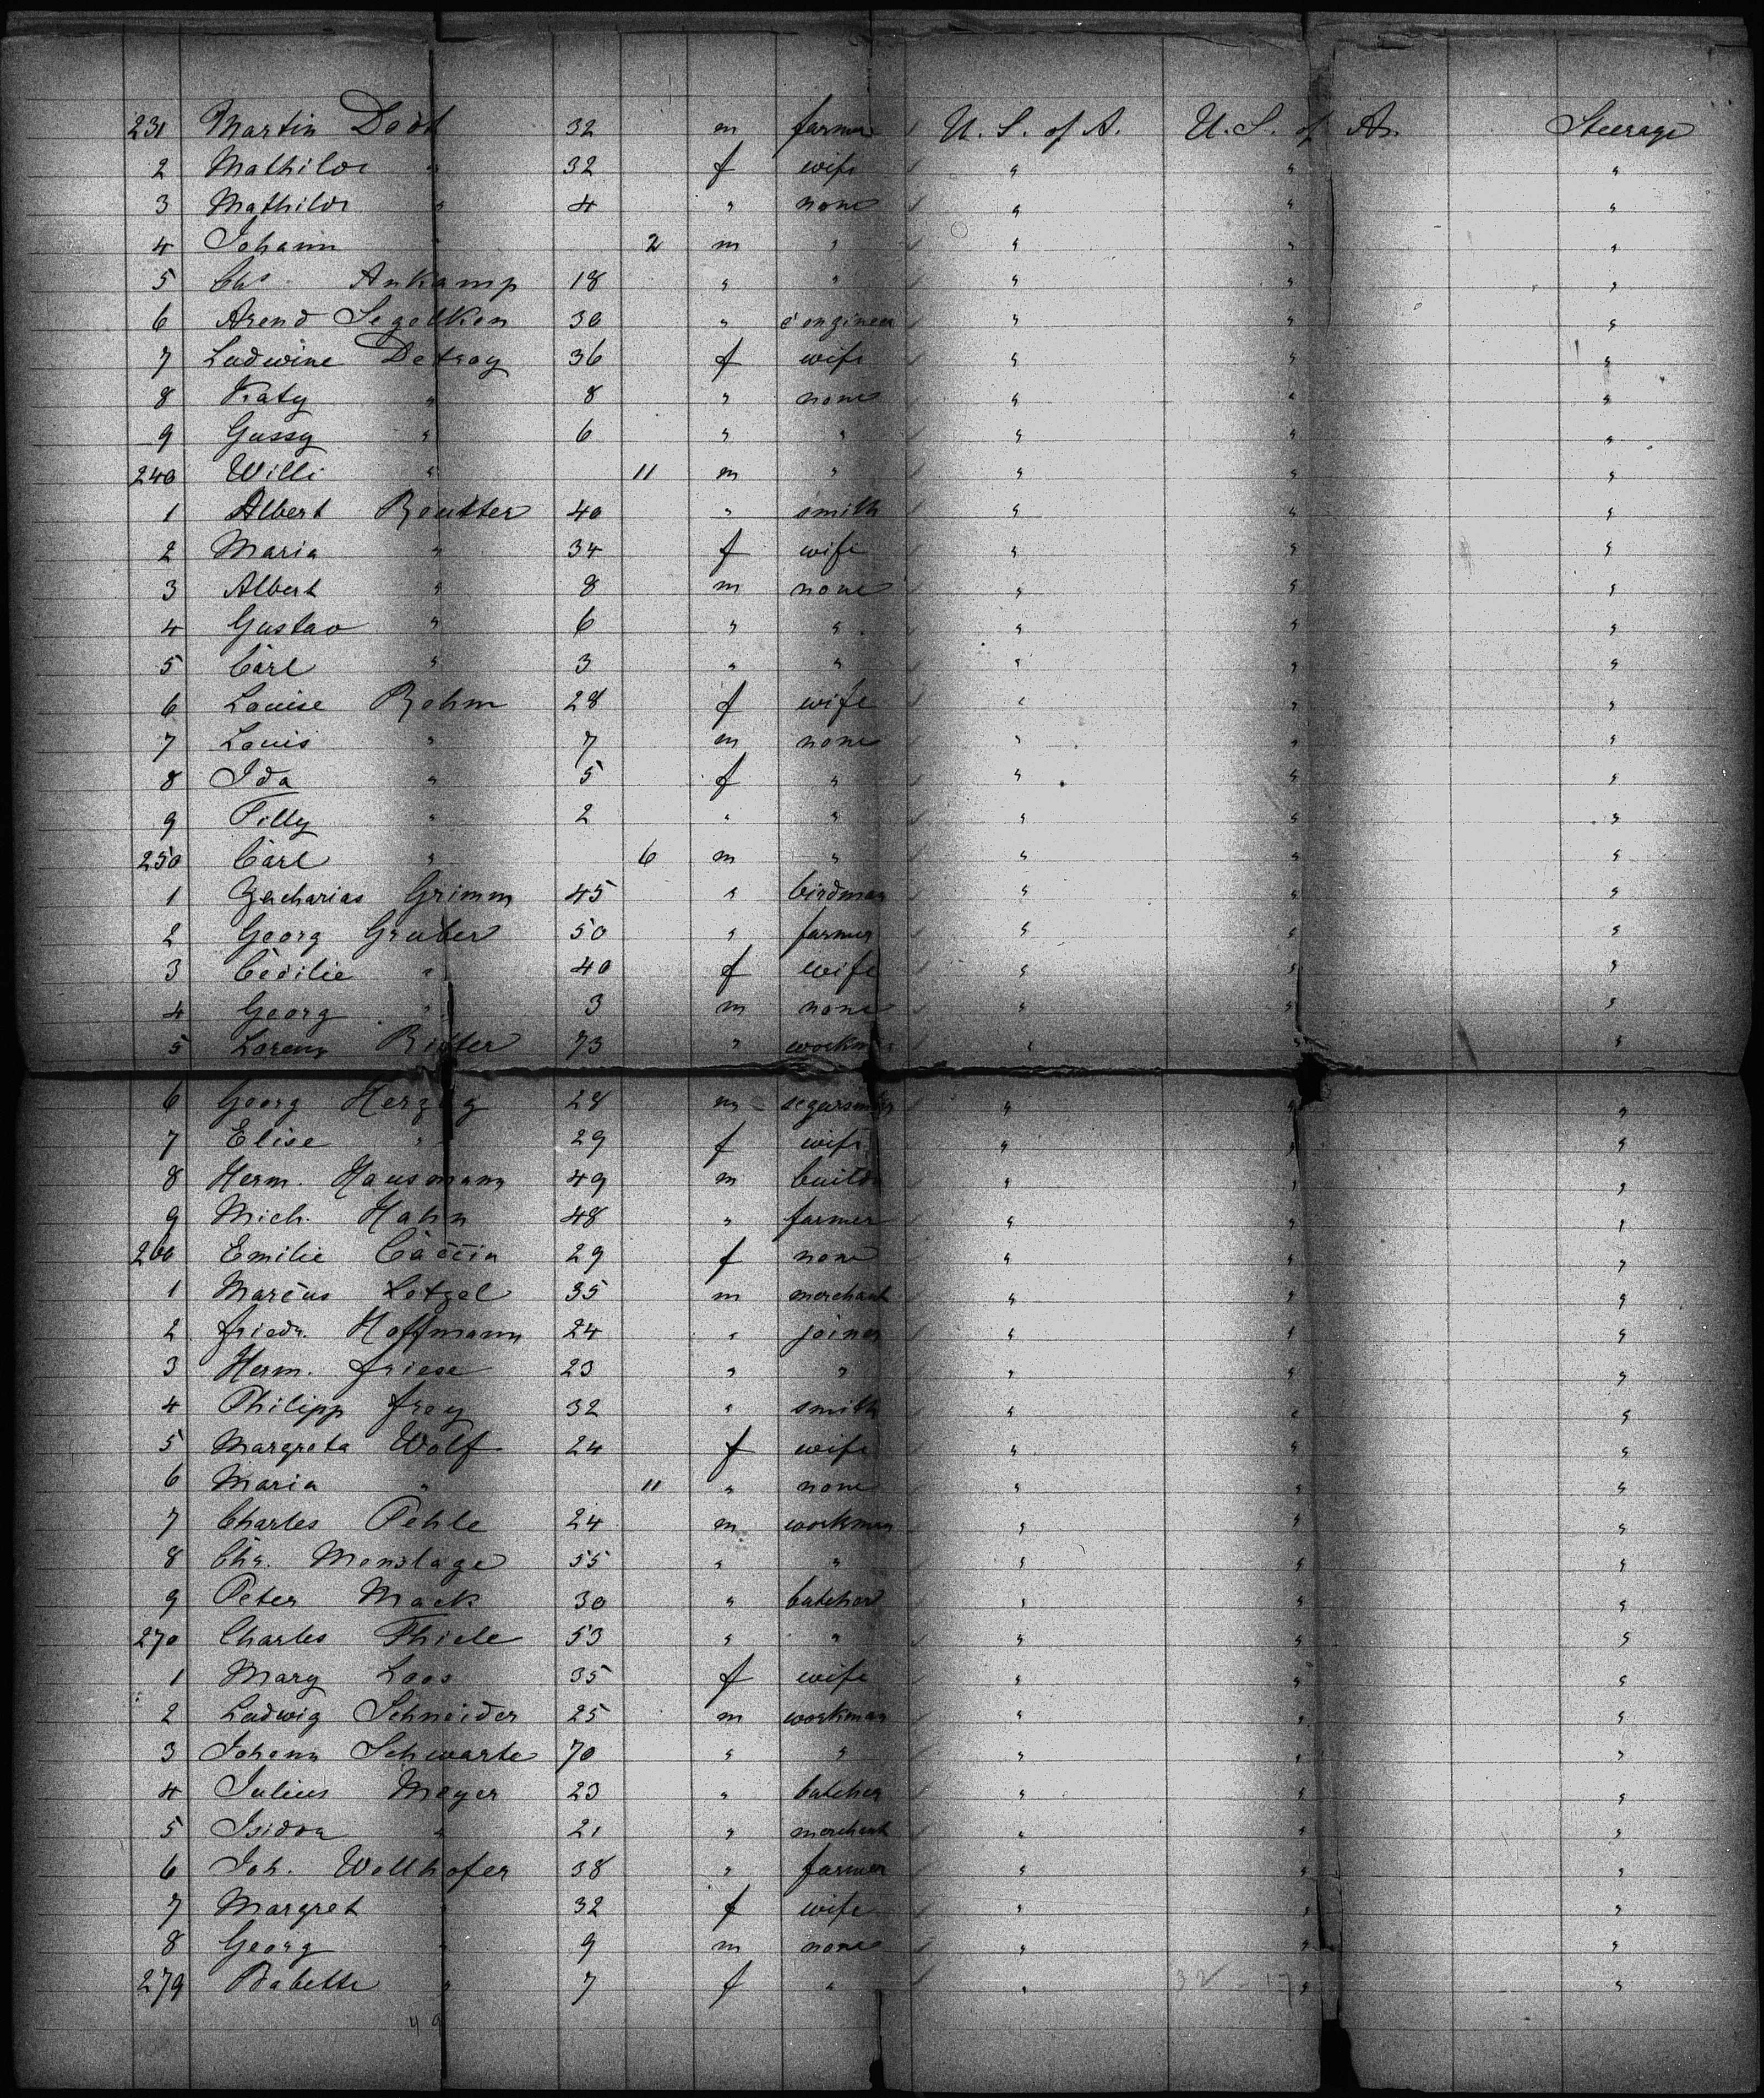 231 Martin Dodt 32 m farmer U. S. of A. U. S. of Am. Steerage
2 Mathilde " 32 f wife " " "
3 Mathilde " 4 " none " " "
4 Johann " 2 m " " " "
5 Chs Ankamp 18 " " " " "
6 Arend Segelken 30 " engineer " " "
7 Ludwine Detroy 36 f wife " " "
8 Katy " 8 " none " " "
9 Gussy " 6 " " " " "
240 Willi " 11 m " " " "
1 Albert Reutter 40 " smith " " "
2 Maria " 34 f wife " " "
3 Albert " 8 m none " " "
4 Gustav " 6 " " " " "
5 Carl " 3 " " " " "
6 Louise Rehm 28 f wife " " "
7 Louis " 7 m none " " "
8 Ida " 5 f " " " "
9 Tilly " 2 " " " " "
250 Carl " 6 m " " " "
1 Zacharias Grimm 45 " birdman " " "
2 Georg Gruber 50 " farmer " " "
3 Cecilie " 40 f wife " " "
4 Georg " 3 m none " " "
5 Lorenz Ritter 73 " workman " " "
6 Georg Herzog 28 m segarsmkr " " "
7 Elise " 29 f wife " " "
8 Herm. Hausmann 49 m builder " " "
9 Mich. Hahn 48 " farmer " " "
260 Emilie 29 f none " " "
1 Marcus Letzel 35 m merchant " " "
2 Friedr. Hoffmann 24 " joiner " " "
3 Herm. Friese 23 " " " " "
4 Philipp Frey 32 " smith " " "
5 Margreta Wolf 24 f wife " " "
6 Maria " 11 " none " " "
7 Charles Pehle 24 m workman " " "
8 Chr. Menslage 55 " " " " "
9 Peter Mack 30 " butcher " " "
270 Charles Thiele 53 " " " " "
1 Mary Loos 35 f wife " " "
2 Ludwig Schneider 25 m workman " " "
3 Johann Schwarte 70 " " " " "
4 Julius Meyer 23 " butcher " " "
5 Isidor " 21 " merchant " " "
6 Joh. Wellhofer 38 " farmer " " "
7 Margret " 32 f wife " " "
8 Georg " 9 m none " " "
279 Babette " 7 f " " " "